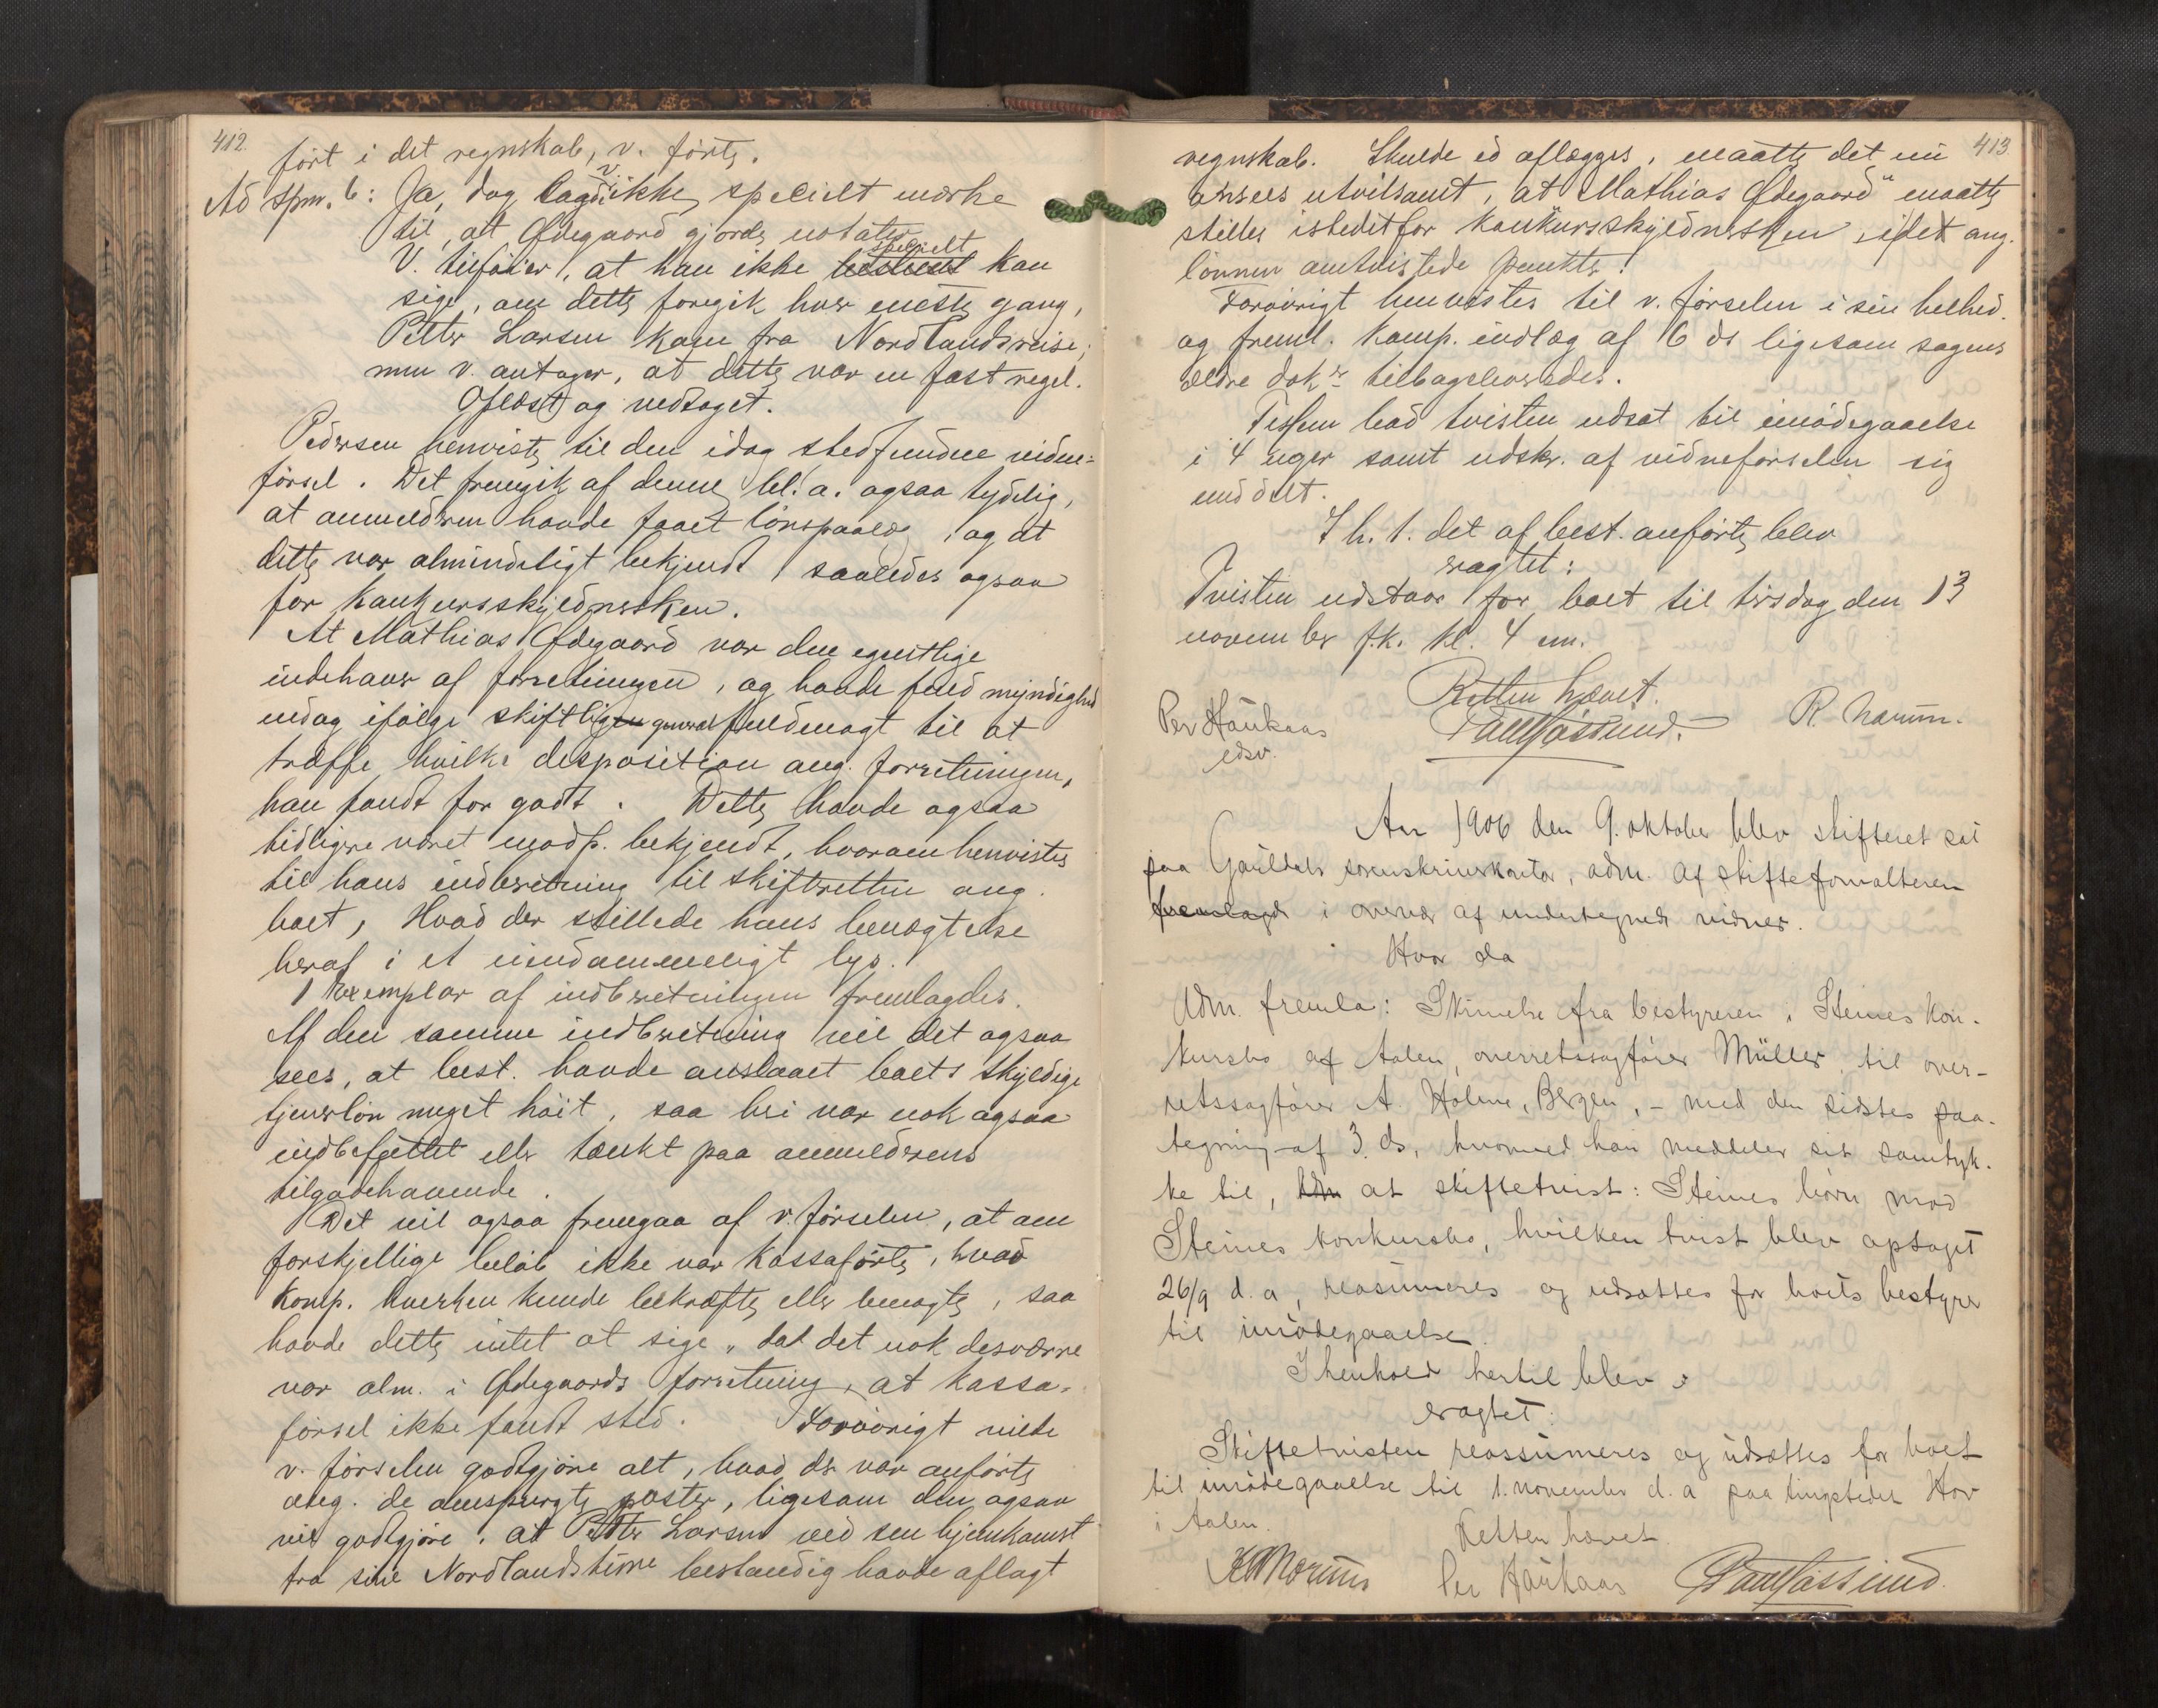 412.
ført i det regnskab, v. førte.
Ad spm. 6: Ja, dog lagde v. ikke specielt mærke
til, at Ødegaard gjorde notater.
V. tilføier, at han ikke specielt kan
sige, om dette foregik hver eneste gang,
Petter Larsen kom fra Nordlandsreise;
men v. antager, at dette var en fast regel.
Oplæst og vedtaget.
Pedersen henviste til den idag stedfundne vidne-
førsel. Det fremgik af denne bl. a. ogsaa tydelig,
at anmelderen havde faaet lønspaalæg, og at
dette var almindeligt bekjendt, saaledes ogsaa
for konkursskyldnersken.
At Mathias Ødegaard var den egentlige
indehaver af forretningen, og havde fuld myndighed
endog ifølge skiftlig general fuldmagt til at
træffe hvilke disposition ang. forretningen,
han fandt for godt. Dette havde ogsaa
tidligere været modp. bekjendt, hvorom henvistes
til hans indberetning til skifteretten ang.
boet, Hvad der stillede hans benægtelse
heraf i et eiendommeligt lys.
1 Exemplar af indberetningen fremlagdes.
Af den samme indberetning vil det ogsaa
sees, at best. havde anslaaet boets skyldige
tjenerløn meget høit, saa heri var nok ogsaa
indbefattet eller tænkt paa anmelderens
tilgodehavende.
Det vil ogsaa fremgaa af v. førselen, at om
forskjellige beløb ikke var kassaførte, hvad
komp. hverken kunde bekræfte eller benægte, saa
havde dette intet at sige, da det nok desværre
var alm. i Ødegaards forretning, at kassa-
førsel ikke fandt sted. Forøvrigt vilde
v. førselen godtgjøre alt, hvad der var anførte
ang. de omspurgte poster, ligesom den ogsaa
vil godtgjøre, at Petter Larsen ved sen hjemkomst
fra sine Nordlandsturre bestandig havde aflagt
413
regnskab. Skulde ed aflægges, maatte det nu
ansees utvilsomt, at Mathias Ødegaard maatte
stilles istedetfor konkursskyldnersken i det ang.
lønnen omtvistede punkt.
Forøvrigt henvistes til v. førselen i sin helhed.
og freml. komp. indlæg af 16 ds ligesom sagens
ældre dokr tilbageleveredes.
Tessem bad tvisten udsat til imødegaaelse
i 4 uger samt udskr. af vidneførselen sig
meddelt.
I h. t. det af best. anførte blev
eragtet:
Tvisten udstaar for boet til tirsdag den 13
november f.k. kl. 4 em.
Retten hævet.
Per Haukaas
edsv.
Paul Gaassund.
R. Narum.
Aar 1906 den 9. oktober blev skifteret sat
paa Gauldals sorenskriverkontor, adm. af skifteforvalteren
fremlagde i overvær af undertegnede vidner.
Hvor da
Adm. fremla: Skrivelse fra bestyreren i Steines kon-
kursbo af Aalen, overretssagfører Müller til over-
retssagfører A. Holme, Bergen, - med den sidstes paa-
tegning af 3. ds, hvorved han meddeler sit samtyk-
ke til, at skiftetvist: Steines børn mod
Steines konkursbo, hvilken tvist blev optaget
26/9 d. a, reasumeres og udsættes for boets bestyrer
til imødegaaelse.
I henhold hertil blev
eragtet:
Skiftetvisten reassumeres og udsættes for boet
til imødegaaelse til 1. november d. a paa tingstedet Hov
i Aalen.
Retten hævet
Per Haukaas
Paul Gaassund.